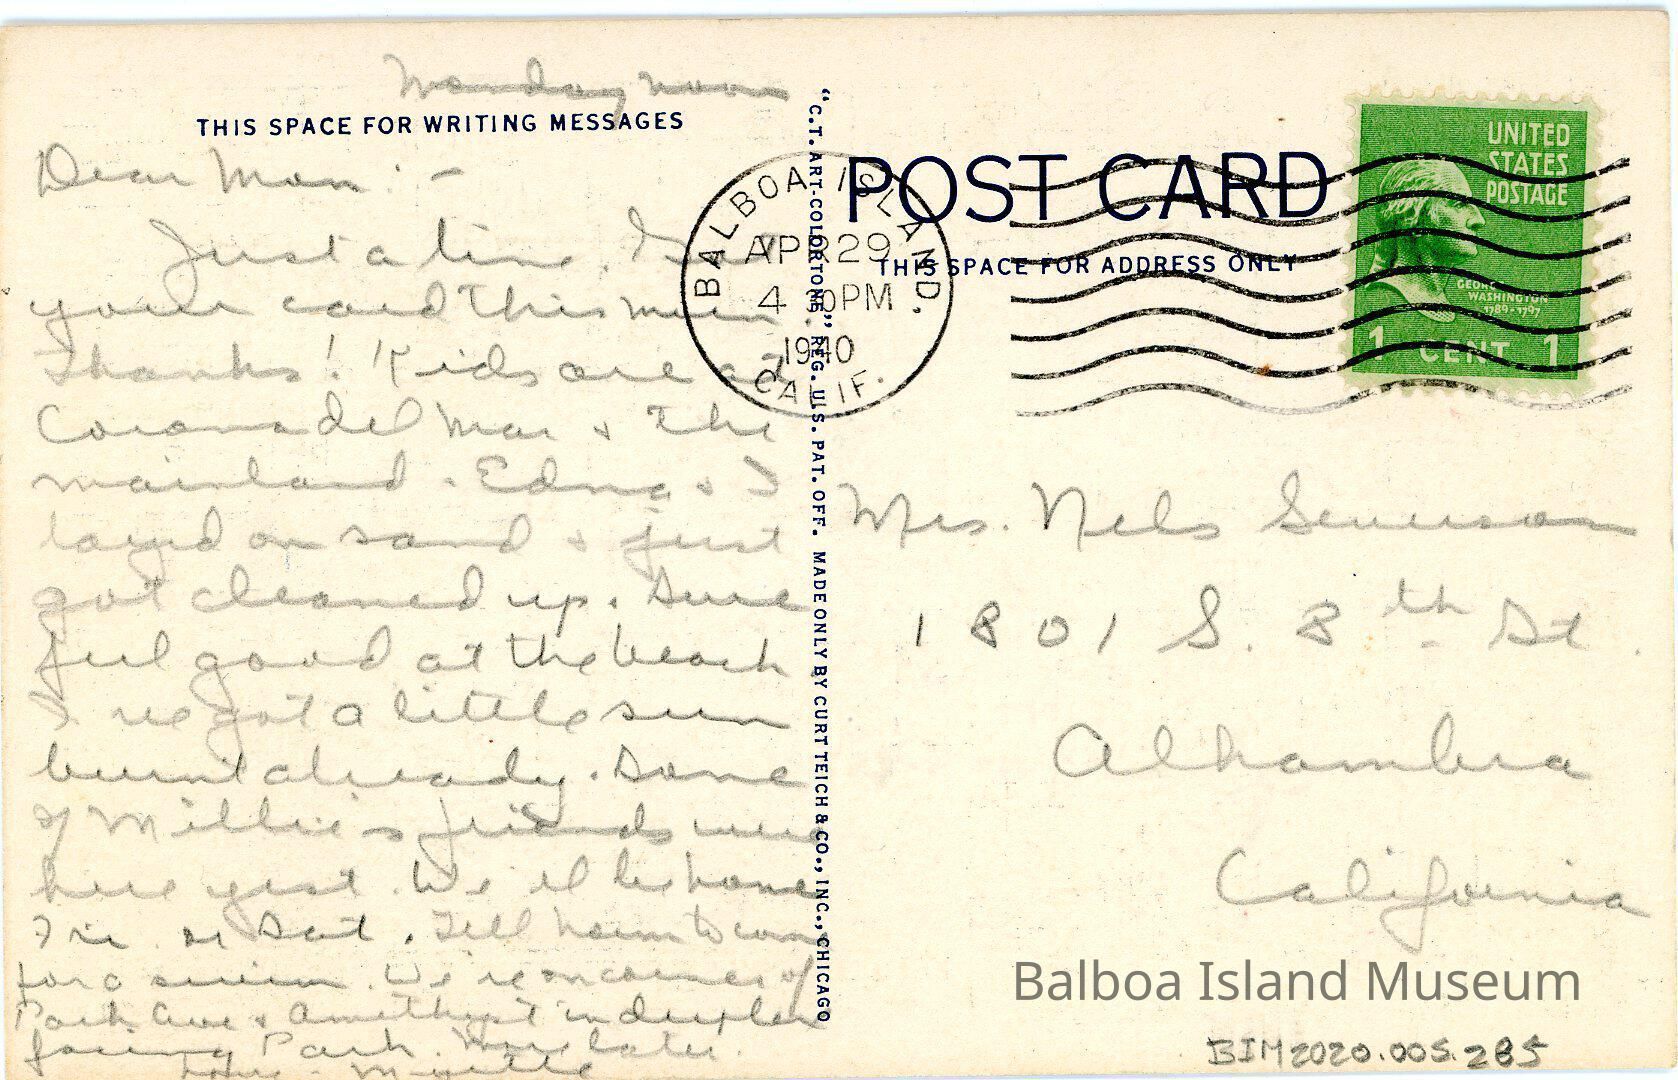 Monday noon
THIS SPACE FOR WRITING MESSAGES
Dear Mom: -
Just a line. Got
your card this morn.
Thanks! Kids are at
Corona del Mar & the
mainland. Edna & I
layed on sand & just
got cleaned up. Sure
feel good at the beach
I've got a little sun
burnt already. Some
of Millie's friends were
here yest. We'll be home
Fri. or Sat. Tell them to come
for a swim. We're on corner of
Park Ave & Amethyst in duplex
facing Park. More later.
Love - Myrtle
"C.T. ART-COLORTONE" REG. U.S. PAT. OFF. MADE ONLY BY CURT TEICH & CO., INC., CHICAGO
BALBOA ISLAND.
APR 29
4 PM
1940
CALIF.
POST CARD
THIS SPACE FOR ADDRESS ONLY
UNITED
STATES
POSTAGE
GEORGE
WASHINGTON
1789-1797
1 CENT 1
Mrs. Nels Severson
1801 S. 8th St.
Alhambra
California
Balboa Island Museum
BIM2020.005.285